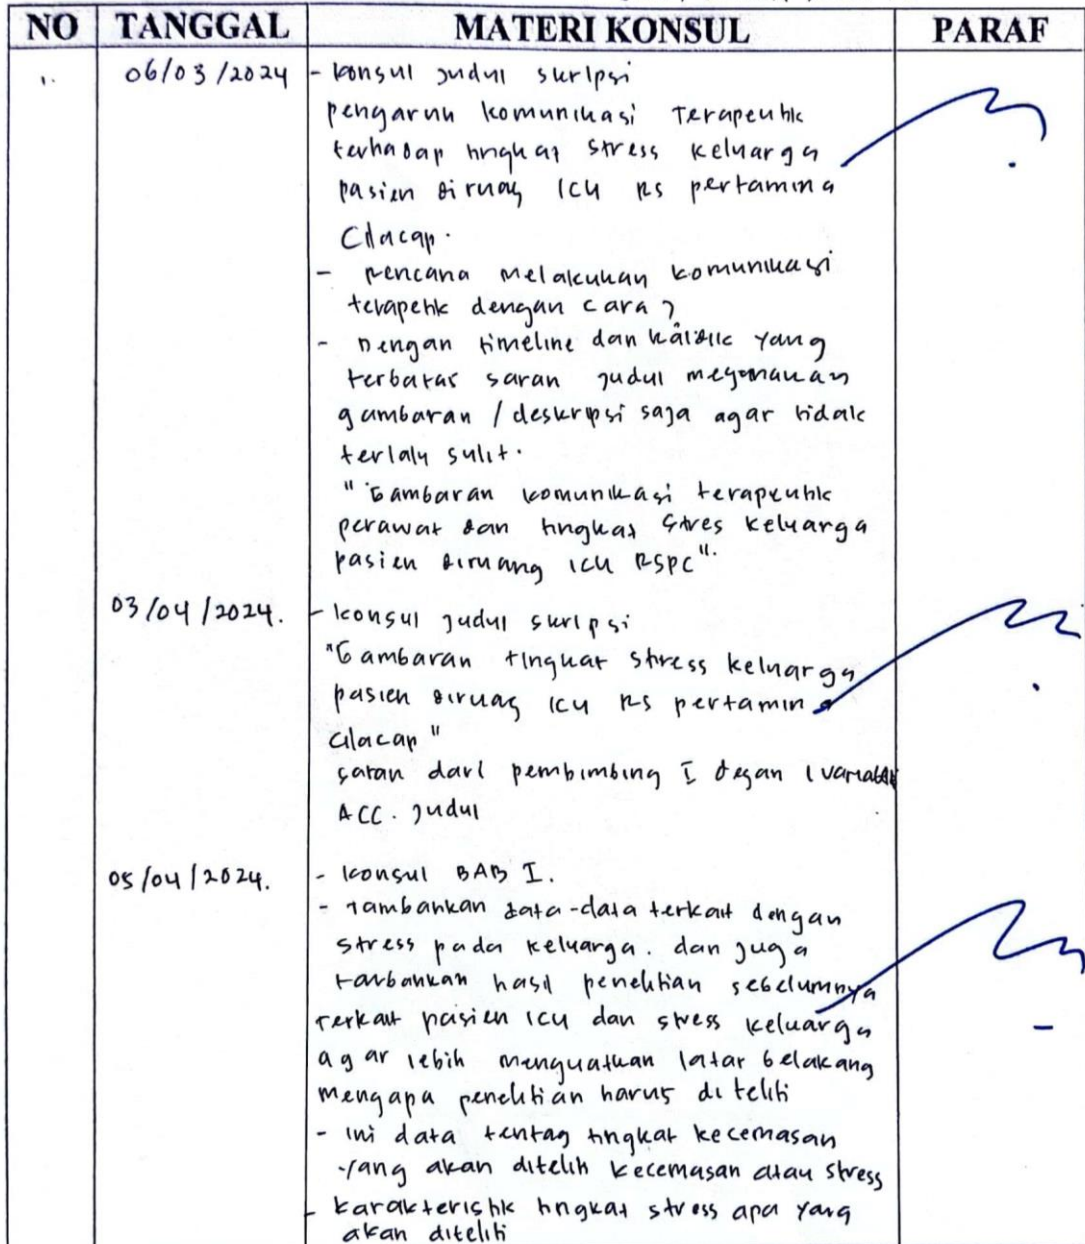 NO TANGGAL MATERI KONSUL PARAF
1. 06/03/2024 - konsul judul skripsi
pengaruh komunikasi Terapeutik
terhadap tingkat stress keluarga
pasien diruag ICU RS pertamina
Cilacap.
- rencana melakukan komunikasi
terapetik dengan cara ?
- Dengan timeline dan yang
terbatas saran judul
gambaran / deskripsi saja agar tidak
terlalu sulit.
"Gambaran komunikasi terapeutik
perawat dan tingkat stres keluarga
pasien diruang ICU RSPC".
03/04/2024. - konsul judul skripsi
"Gambaran tingkat stress keluarga
pasien diruag ICU RS pertamina
Cilacap"
saran dari pembimbing I degan 1 variabel
ACC. judul
05/04/2024. - konsul BAB I.
- Tambahkan data-data terkait dengan
stress pada keluarga. dan juga
tambahkan hasil penelitian sebelumnya
Terkait pasien ICU dan stress keluarga
agar lebih menguatkan latar belakang
mengapa penelitian harus di teliti
- ini data tentag tingkat kecemasan
yang akan diteliti kecemasan atau stress
- karakteristik tingkat stress apa yang
akan diteliti